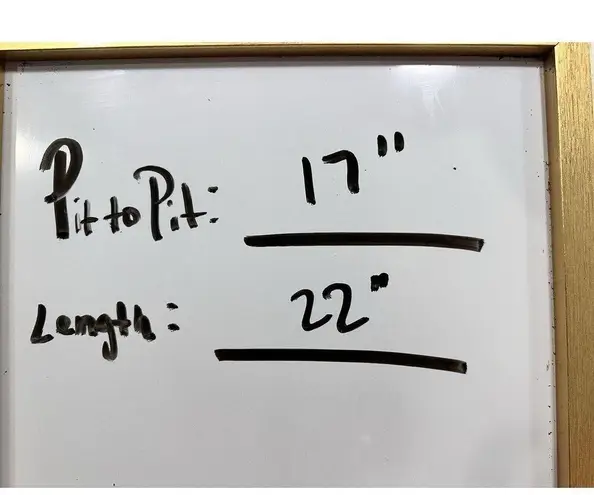 Pit to Pit: 17"
Length: 22"